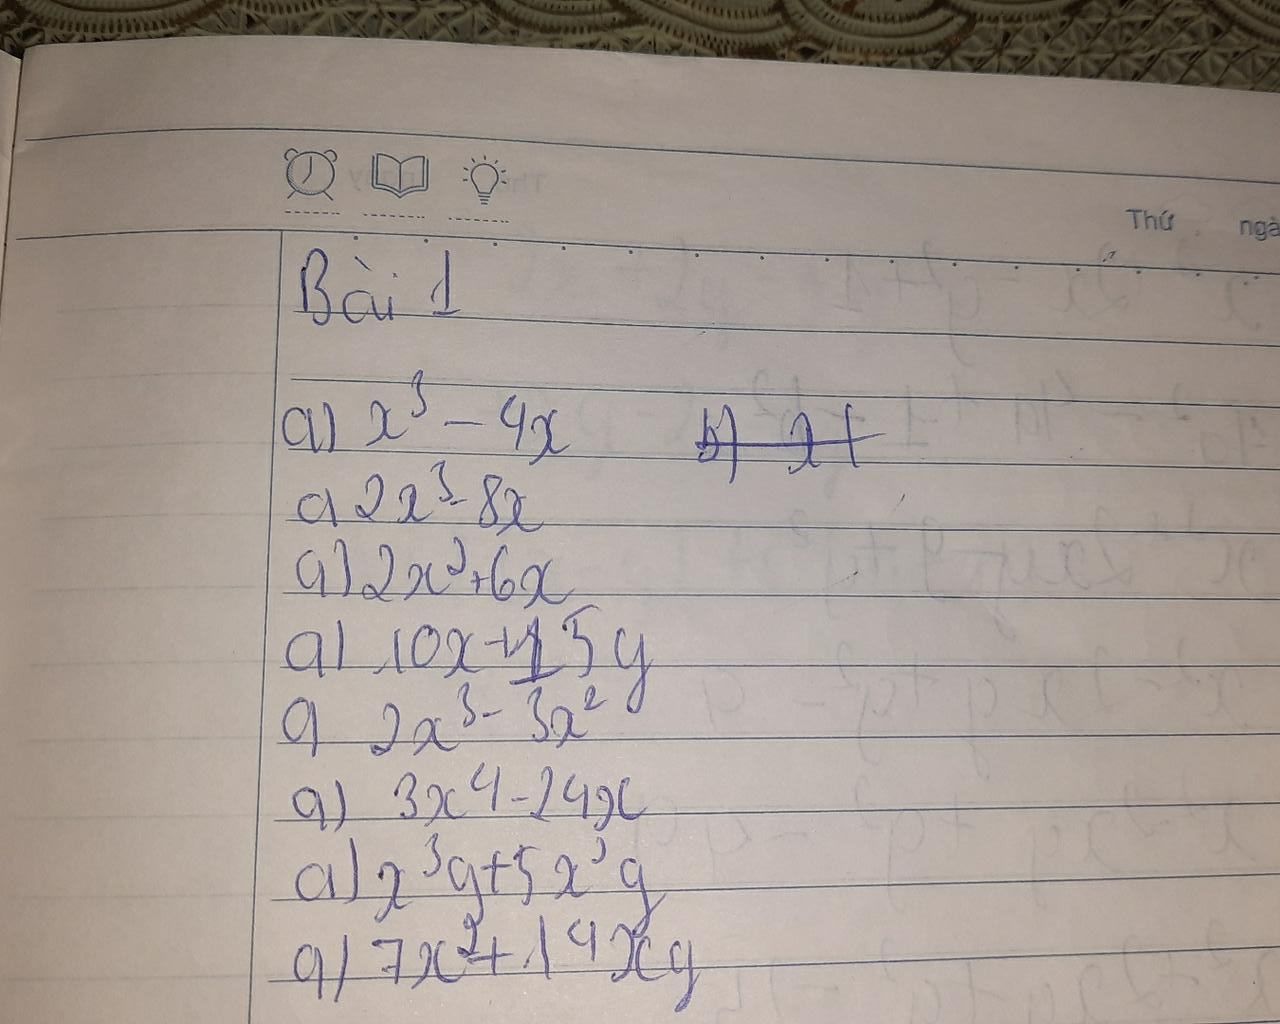 Thứ ngà
Bài 1
a) x³ - 4x
a 2x³ - 8x
a) 2x² + 6x
a) 10x + 15y
a 2x³ - 3x²
a) 3x⁴ - 24x
a) x³y + 5x³y
a) 7x² + 14xy